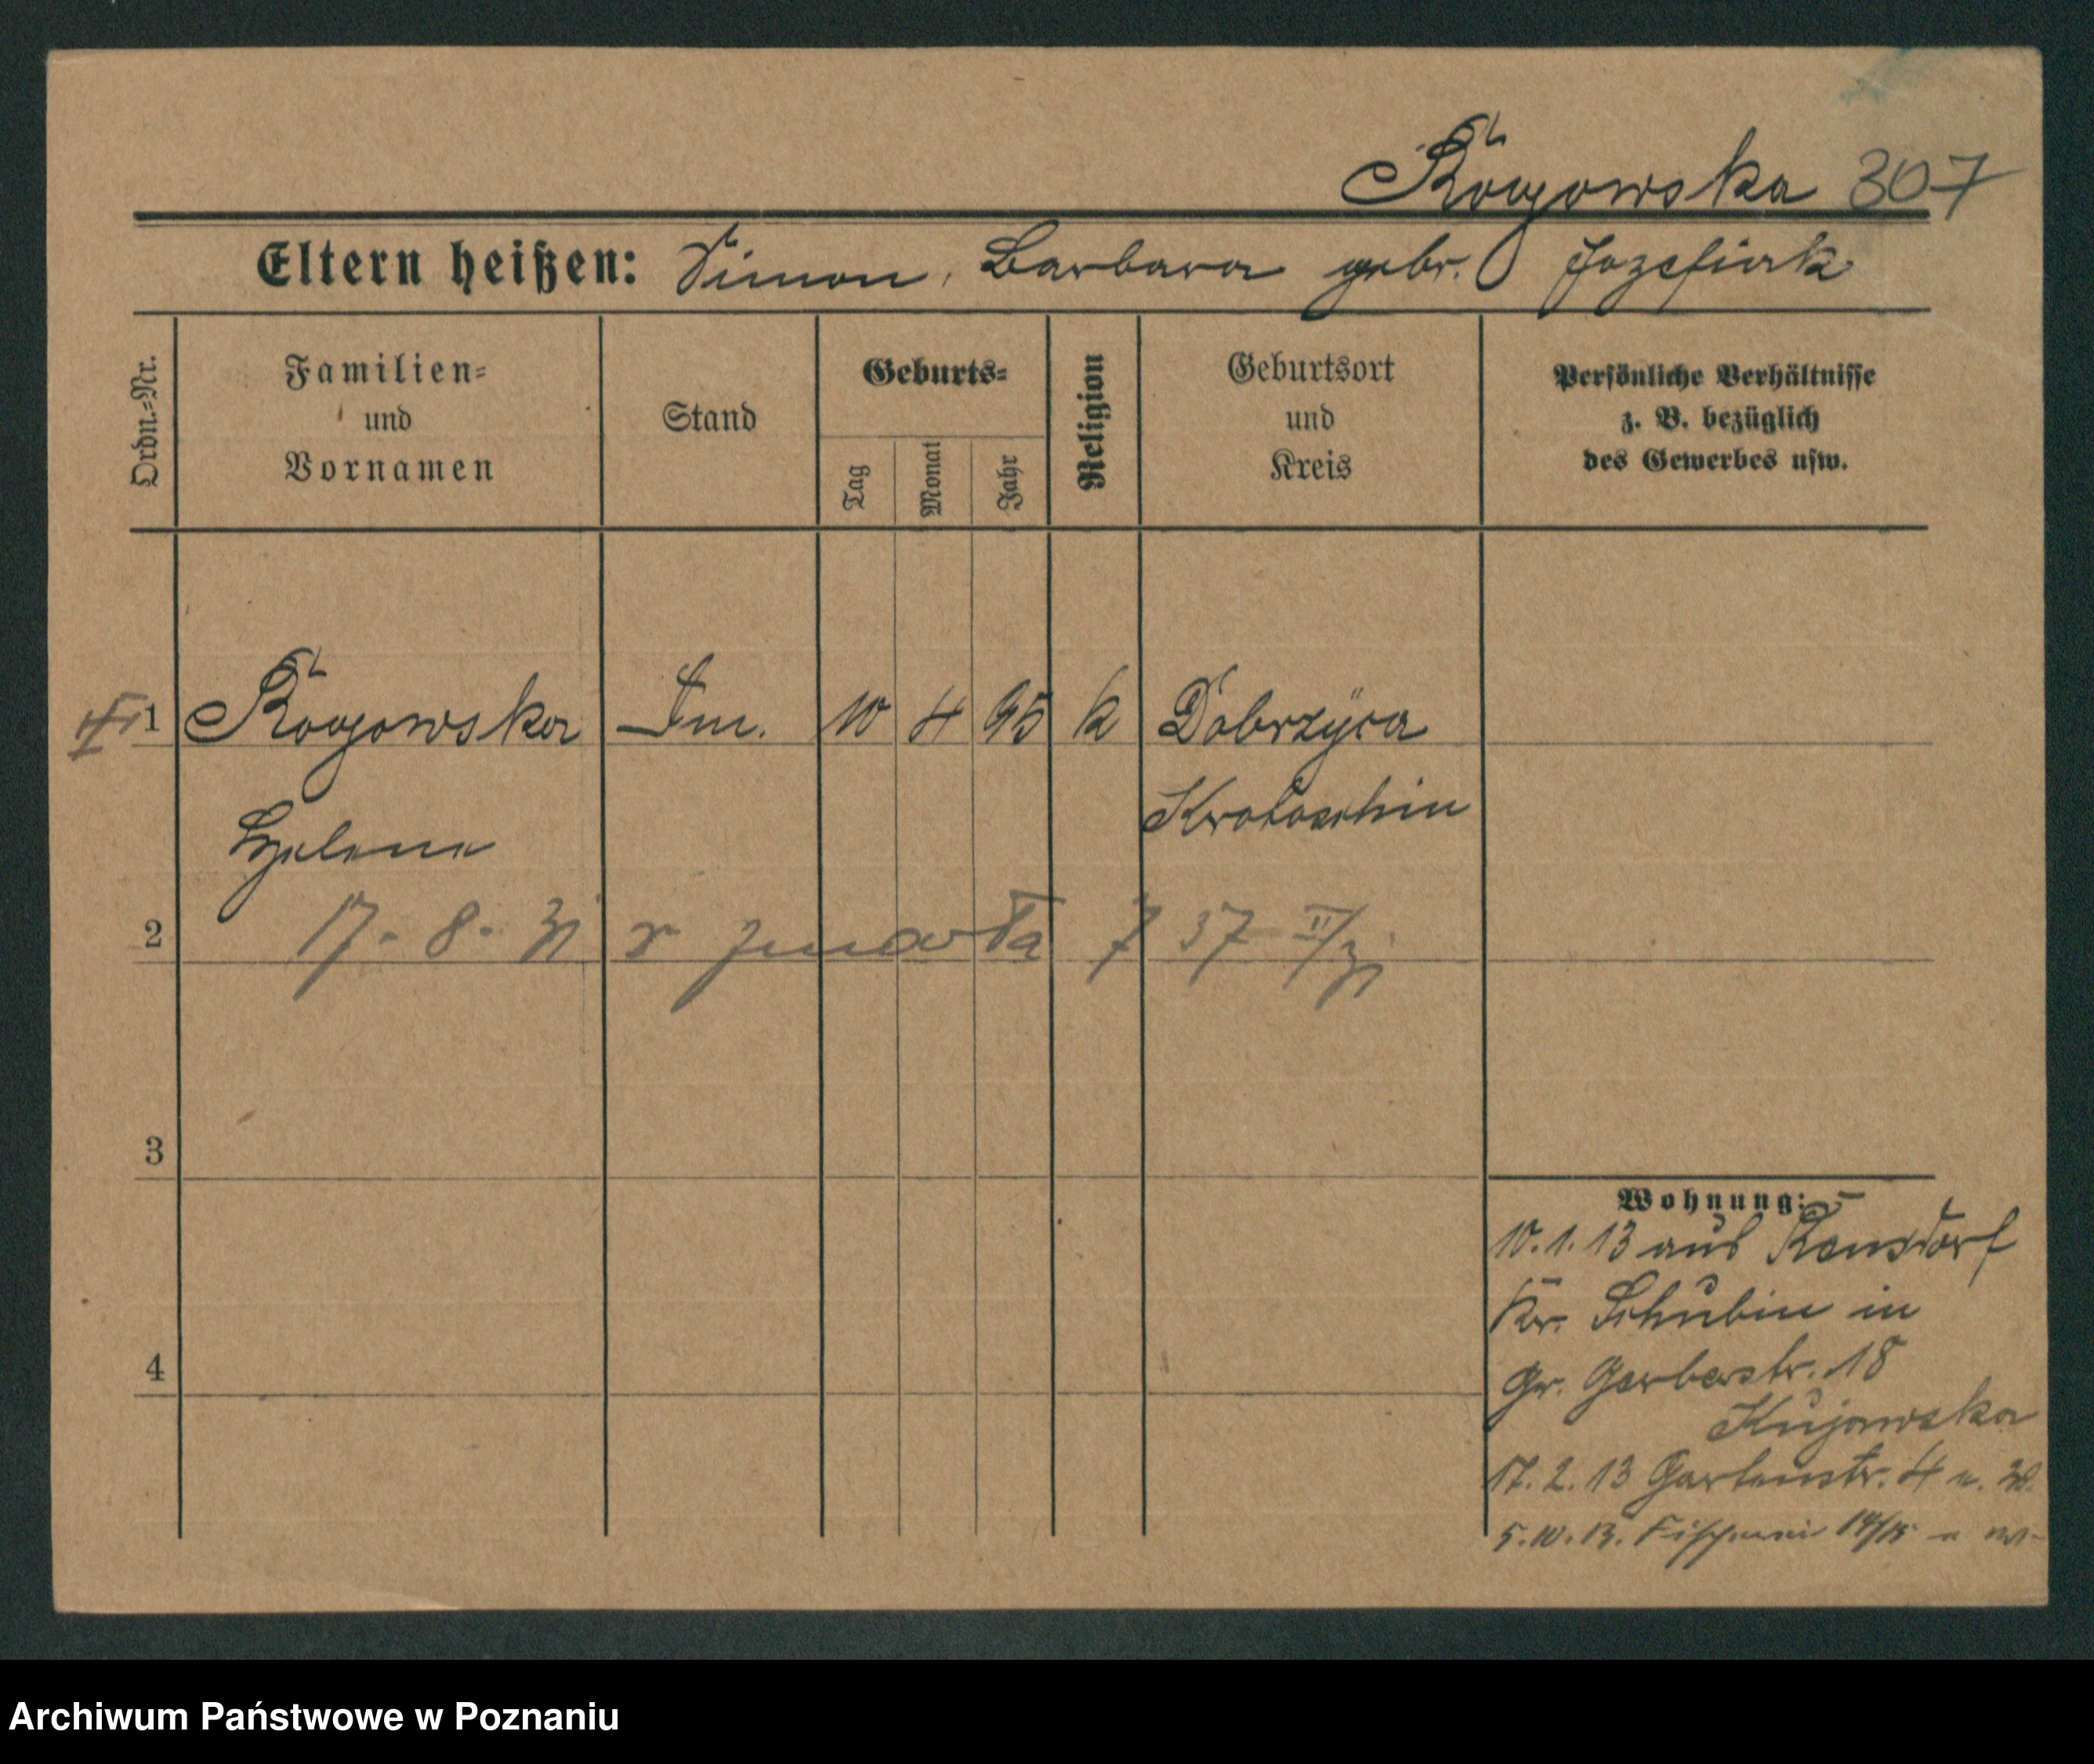 Rougowska 307
Eltern heißen: Simon, Barbara gebr. Jozefiak
Ordn.-Nr.
Familien-
und
Vornamen
Stand
Geburts-
Tag
Monat
Jahr
Religion
Geburtsort
und
Kreis
Persönliche Verhältnisse
z. B. bezüglich
des Gewerbes usw.
1 Rougowska 10 4 95 k Dobrzyca
Helena Krotoschin
2 17. 8. 31 r zmarła 37 II/31
3
4
Wohnung:
10.1.13 aus
Kr. Schubin in
Gr. Gerberstr. 18
Kujawska
17.2.13 Gartenstr. 4
5.10.13. Fischerei 14/15
Archiwum Państwowe w Poznaniu